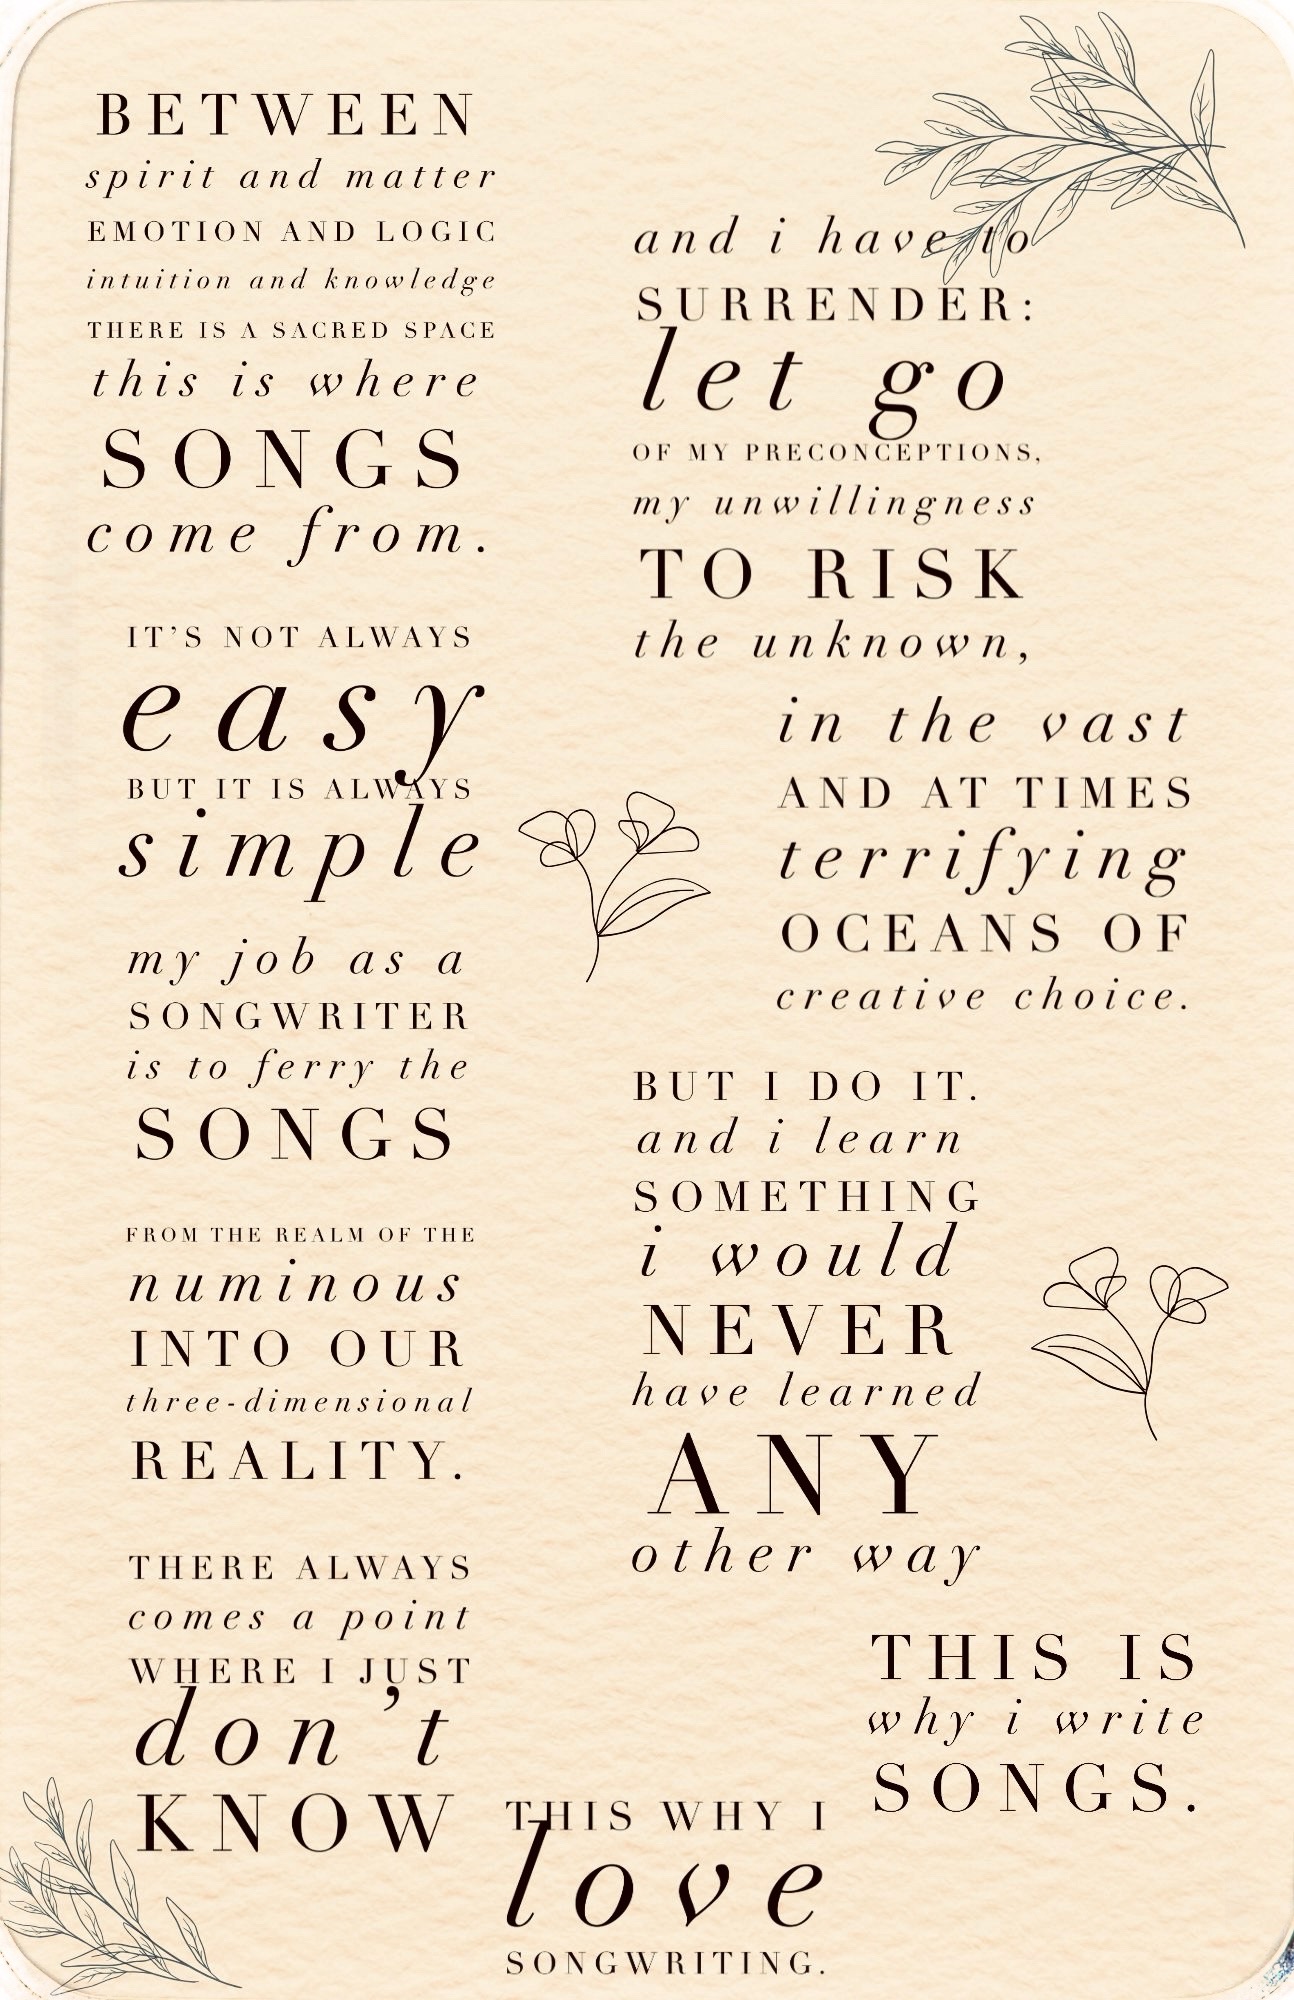 BETWEEN
spirit and matter
EMOTION AND LOGIC
intuition and knowledge
THERE IS A SACRED SPACE
this is where
SONGS
come from.
IT'S NOT ALWAYS
easy
BUT IT IS ALWAYS
simple
my job as a
SONGWRITER
is to ferry the
SONGS
FROM THE REALM OF THE
numinous
INTO OUR
three-dimensional
REALITY.
THERE ALWAYS
comes a point
WHERE I JUST
don't
KNOW
and i have to
SURRENDER:
let go
OF MY PRECONCEPTIONS,
my unwillingness
TO RISK
the unknown,
in the vast
AND AT TIMES
terrifying
OCEANS OF
creative choice.
BUT I DO IT.
and i learn
SOMETHING
i would
NEVER
have learned
ANY
other way
THIS IS
why i write
SONGS.
THIS WHY I
love
SONGWRITING.